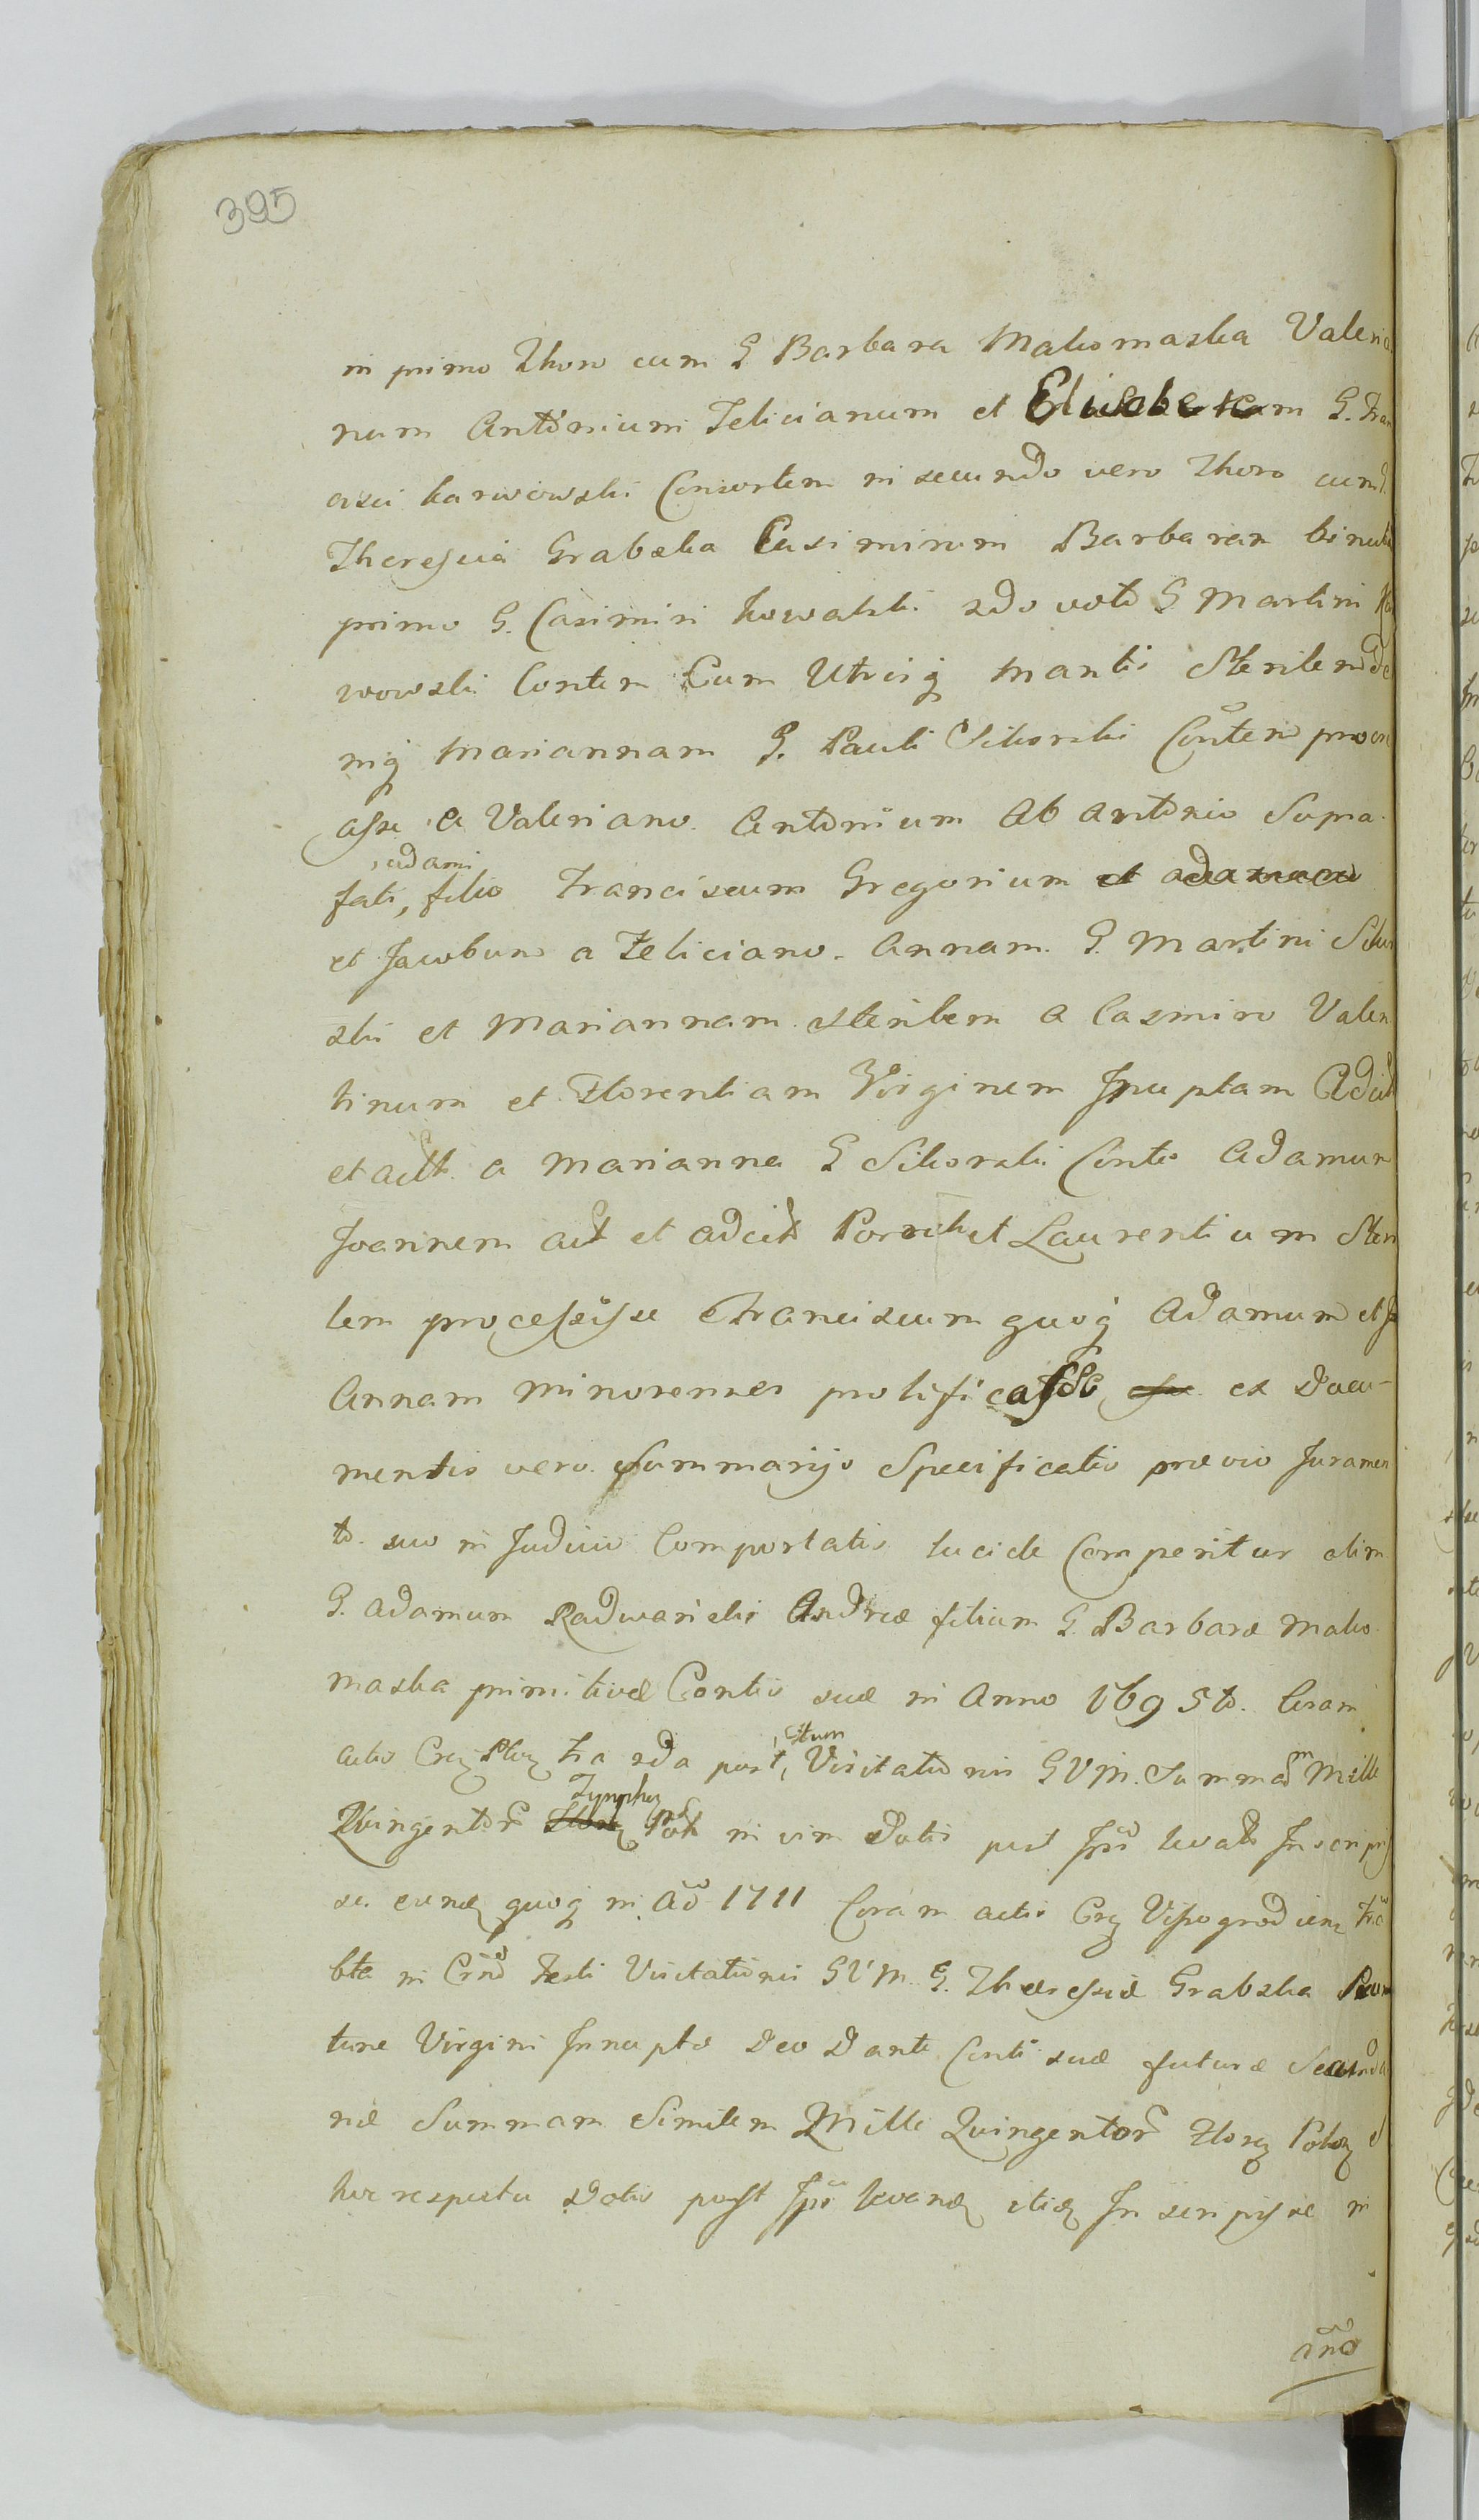 395
in primo Thoro cum G Barbara Makomaska Valeria
num Antonium Felicianum et Elisabetam G. Fran
cisci karwowski Consortem in secundo vero Thoro cum G.
Theressia Grabska Casimirum Barbaram binubā
primo G. Casimiri kowalski 2do voto G Martini Kar
wowski Contem Cum Utrisq maritis Sterilem de
niq Mariannam G. Pauli Sikorski Contem procre
asse a Valeriano Antonium Ab Antonio Supra
, adami
fati, filio Franciscum Gregorium et adamum
et Jacobum a Feliciano. Annam. G. Martini Sikor
ski et Mariannam sterilem a Casmiro Valen
tinum et Florentiam Virginem Inuptam Adcit
et actt. a Marianna G Sikorski Contis Adamum
Joannem act et adcit et Laurentium Steri
lem processisse Franciscum quoq Adamum et
Annam minorennes prolificasse ex Docu-
mentis vero Summarijs Specificatis prævio Juramen
to. suo in Judicio Comportatis lucide Comperitur olim
G. Adamum Radwanski Andreæ filium G. Barbaræ Mako
maska primitivæ Contis suæ in Anno 1695to. Coram
actis Crez fra 2da post, Visitationis GVM. Summam Mille
, festum
Quingentor in vim Dotis post Ipsū levatæ Inscripsis
Tympho
se. eundē quoq in Aō 1711 Coram actis Crez Vissogrodien fra
bta in Crnō Festi Visitationis GVM. G. Theressiæ Grabska
tunc Virgini Innuptæ Deo Dante Conti suæ futuræ Secunda
næ Summam Similem Mille Quingentor Floreñ Polon
hoc respectu Dotis post Ipsū levandæ itidē Inscripsisse in
año